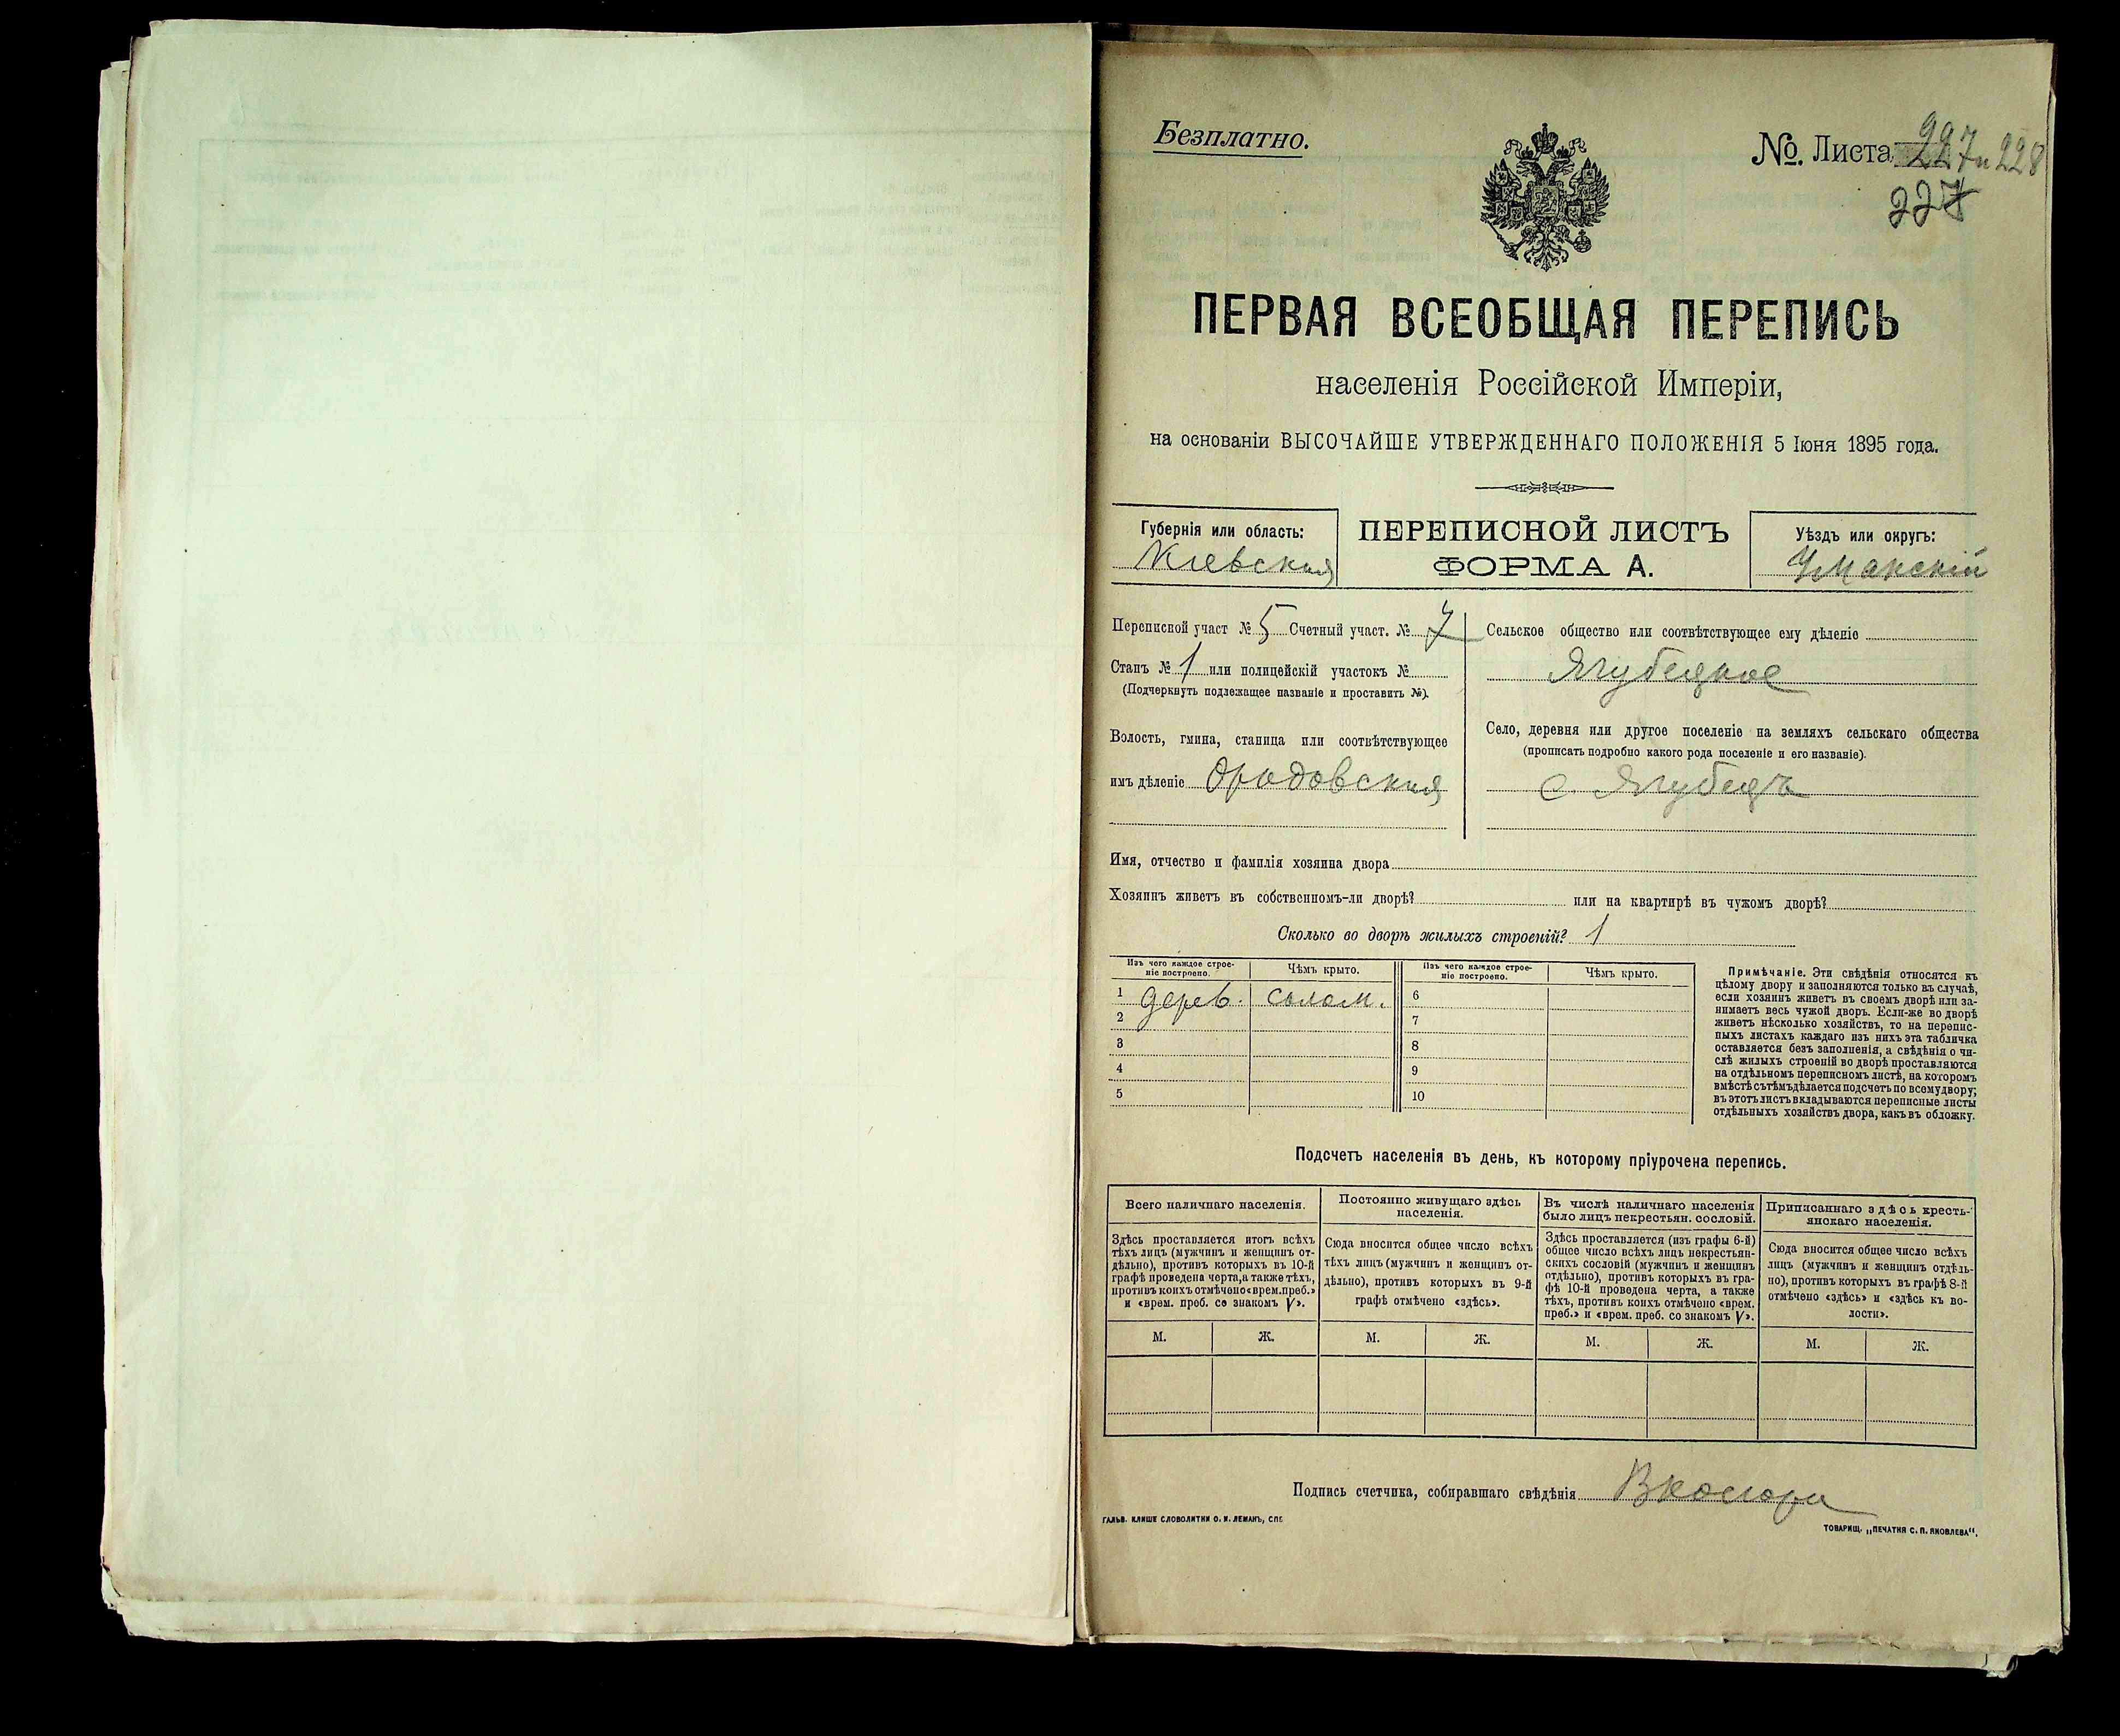 Безплатно.
№. Листа 227 и 228
ПЕРВАЯ ВСЕОБЩАЯ ПЕРЕПИСЬ
населенія Россійской Имперіи,
на основаніи ВЫСОЧАЙШЕ УТВЕРЖДЕННАГО ПОЛОЖЕНІЯ 5 Іюня 1895 года.
Губернія или область:
Кіевская
ПЕРЕПИСНОЙ ЛИСТЪ
ФОРМА А.
Уѣздъ или округъ:
Уманскій
Переписной участ № 5 Счетный участ. № 7
Станъ № 1 или полицейскій участокъ №
(Подчеркнуть подлежащее названіе и проставить №).
Волость, гмина, станица или соотвѣтствующее
имъ дѣленіе
Сельское общество или соотвѣтствующее ему дѣленіе
Ягубецкое
Село, деревня или другое поселеніе на земляхъ сельскаго общества
(прописать подробно какого рода поселеніе и его названіе).
с. Ягубецъ
Имя, отчество и фамилія хозяина двора
Хозяинъ живетъ въ собственномъ-ли дворѣ? или на квартирѣ въ чужомъ дворѣ?
Сколько во дворѣ жилыхъ строеній? 1
Изъ чего каждое строе-
ніе построено.
Чѣмъ крыто.
1 дерев. солом.
2
3
4
5
Изъ чего каждое строе-
ніе построено.
Чѣмъ крыто.
6
7
8
9
10
Примѣчаніе. Эти свѣдѣнія относятся къ
цѣлому двору и заполняются только въ случаѣ,
если хозяинъ живетъ въ своемъ дворѣ или за-
нимаетъ весь чужой дворъ. Если-же во дворѣ
живетъ нѣсколько хозяйствъ, то на перепис-
ныхъ листахъ каждаго изъ нихъ эта табличка
оставляется безъ заполненія, а свѣдѣнія о чи-
слѣ жилыхъ строеній во дворѣ проставляются
на отдѣльномъ переписномъ листѣ, на которомъ
вмѣстѣ съ тѣмъ дѣлается подсчетъ по всему двору;
въ этотъ листъ вкладываются переписные листы
отдѣльныхъ хозяйствъ двора, какъ въ обложку.
Подсчетъ населенія въ день, къ которому пріурочена перепись.
Всего наличнаго населенія.
Здѣсь проставляется итогъ всѣхъ
тѣхъ лицъ (мужчинъ и женщинъ от-
дѣльно), противъ которыхъ въ 10-й
графѣ проведена черта, а также тѣхъ,
противъ коихъ отмѣчено «врем. преб.»
и «врем. преб. со знакомъ V».
М. Ж.
Постоянно живущаго здѣсь
населенія.
Сюда вносится общее число всѣхъ
тѣхъ лицъ (мужчинъ и женщинъ от-
дѣльно), противъ которыхъ въ 9-й
графѣ отмѣчено «здѣсь».
М. Ж.
Въ числѣ наличнаго населенія
было лицъ некрестьян. сословій.
Здѣсь проставляется (изъ графы 6-й)
общее число всѣхъ лицъ некрестьян-
скихъ сословій (мужчинъ и женщинъ
отдѣльно), противъ которыхъ въ гра-
фѣ 10-й проведена черта, а также
тѣхъ, противъ коихъ отмѣчено «врем.
преб.» и «врем. преб. со знакомъ V».
М. Ж.
Приписаннаго здѣсь кресть-
янскаго населенія.
Сюда вносится общее число всѣхъ
лицъ (мужчинъ и женщинъ отдѣль-
но), противъ которыхъ въ графѣ 8-й
отмѣчено «здѣсь» и «здѣсь къ во-
лости».
М. Ж.
Подпись счетчика, собиравшаго свѣдѣнія
ГАЛЬВ. КЛИШЕ СЛОВОЛИТНИ О. И. ЛЕМАНЪ, СПБ
ТОВАРИЩ. „ПЕЧАТНЯ С. П. ЯКОВЛЕВА“.